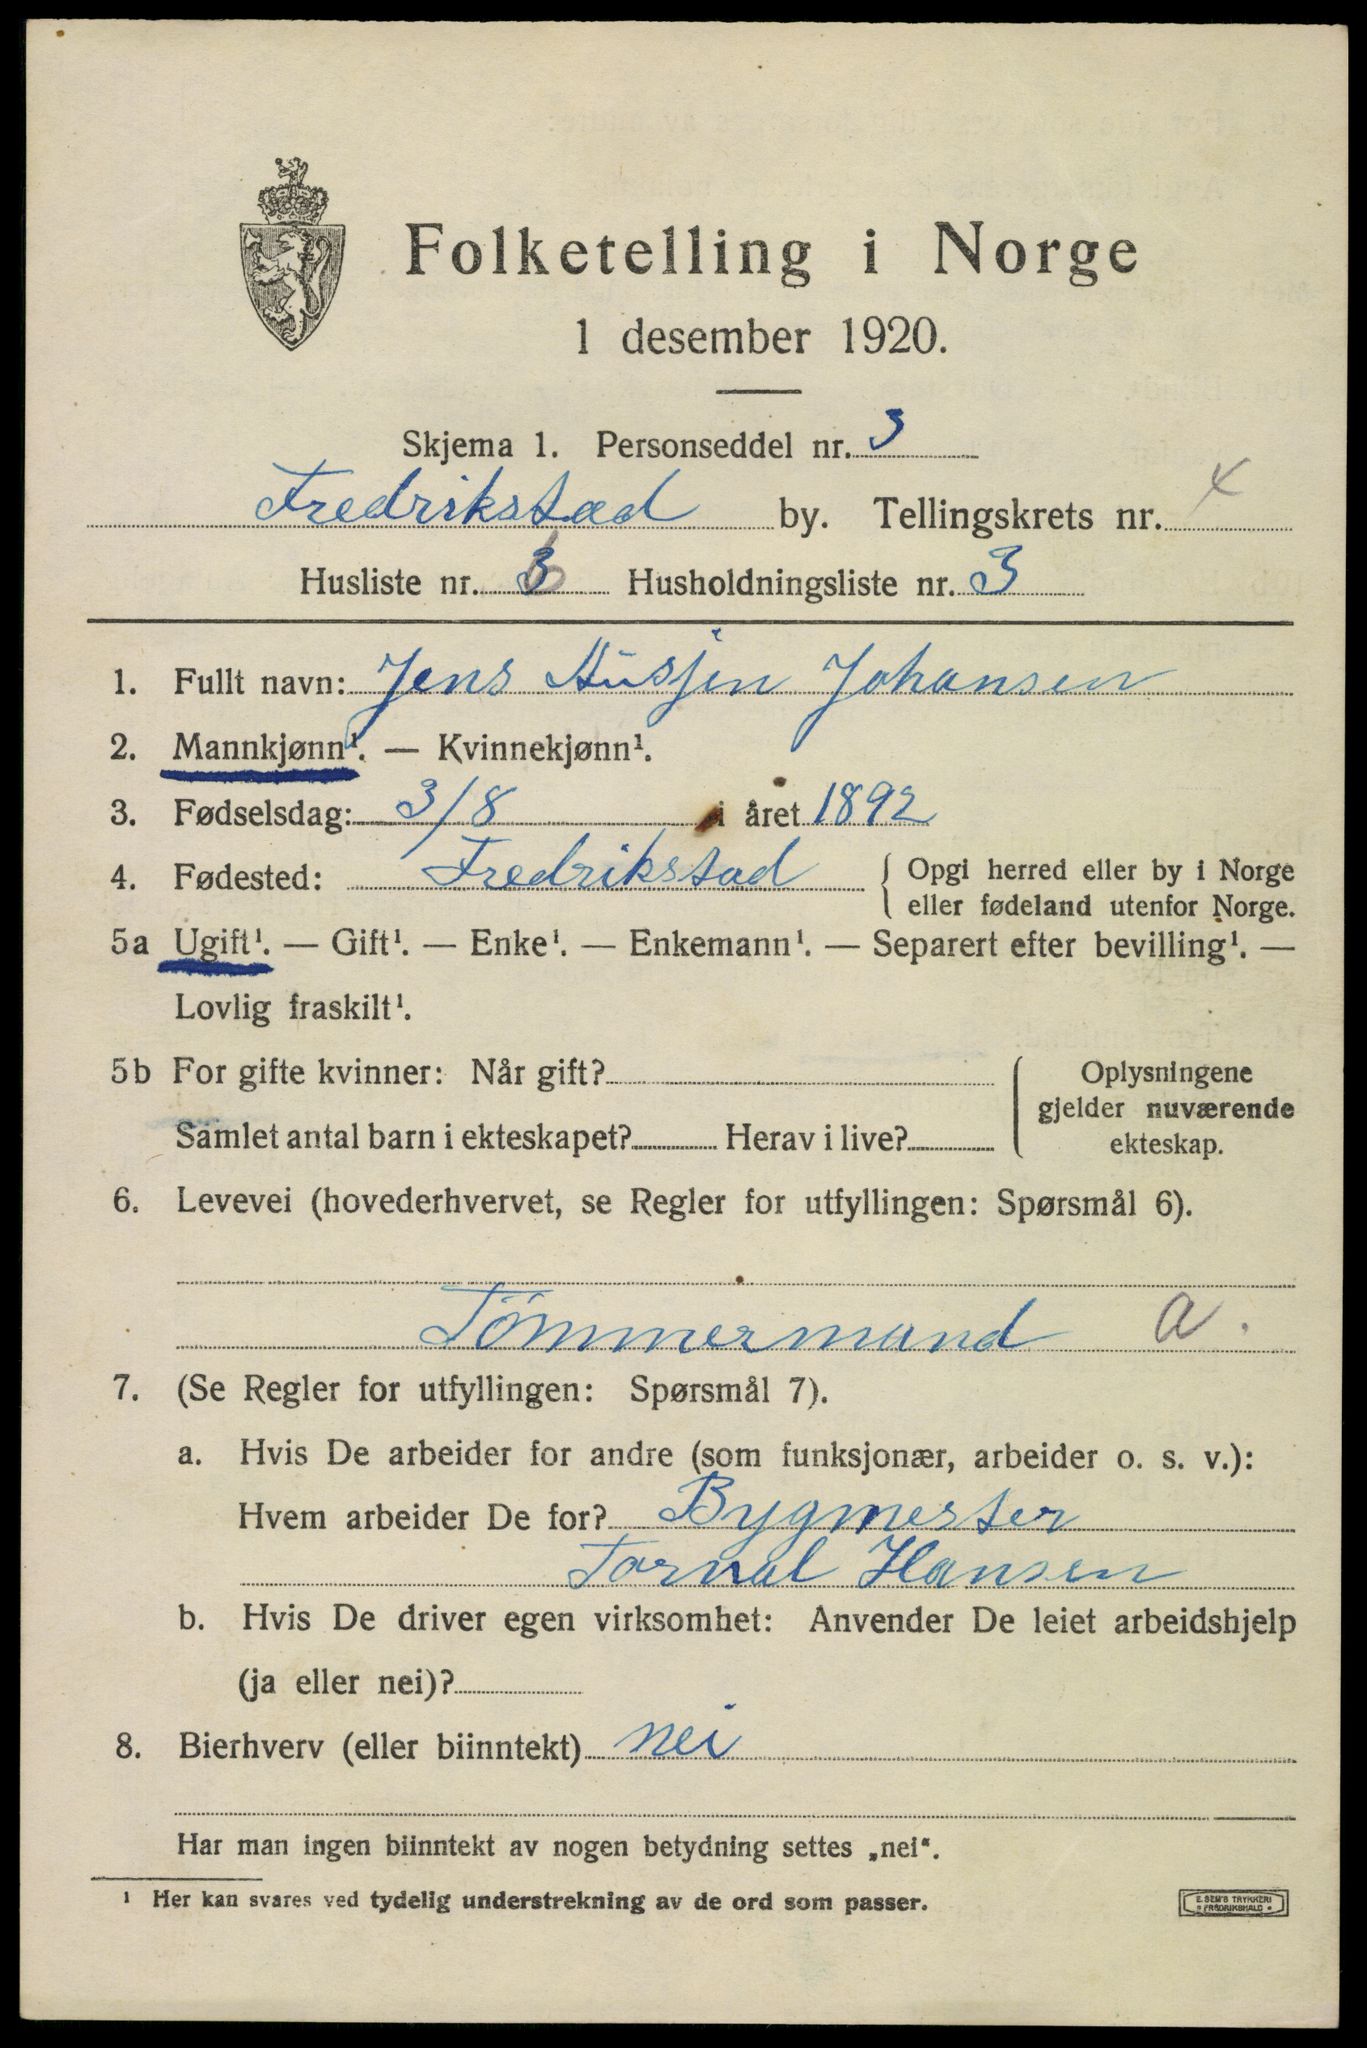 Folketelling i Norge
1 desember 1920.
Skjema 1. Personseddel nr. 3
Fredrikstad by. Tellingskrets nr.
Husliste nr. Husholdningsliste nr. 3
1. Fullt navn: Jens Johansen
2. Mannkjønn¹. — Kvinnekjønn¹.
3. Fødselsdag: 3/8 i året 1892
4. Fødested: Fredrikstad { Opgi herred eller by i Norge
eller fødeland utenfor Norge.
5a Ugift¹. — Gift¹. — Enke¹. — Enkemann¹. — Separert efter bevilling¹. —
Lovlig fraskilt¹.
5b For gifte kvinner: Når gift? { Oplysningene
gjelder nuværende
Samlet antal barn i ekteskapet? Herav i live? ekteskap.
6. Levevei (hovederhvervet, se Regler for utfyllingen: Spørsmål 6).
Tömmermand a.
7. (Se Regler for utfyllingen: Spørsmål 7).
a. Hvis De arbeider for andre (som funksjonær, arbeider o. s. v.):
Hvem arbeider De for? Bygmester
Hansen
b. Hvis De driver egen virksomhet: Anvender De leiet arbeidshjelp
(ja eller nei)?
8. Bierhverv (eller biinntekt) nei
Har man ingen biinntekt av nogen betydning settes „nei“.
¹ Her kan svares ved tydelig understrekning av de ord som passer.
E. SEM'S TRYKKERI
FREDRIKSHALD